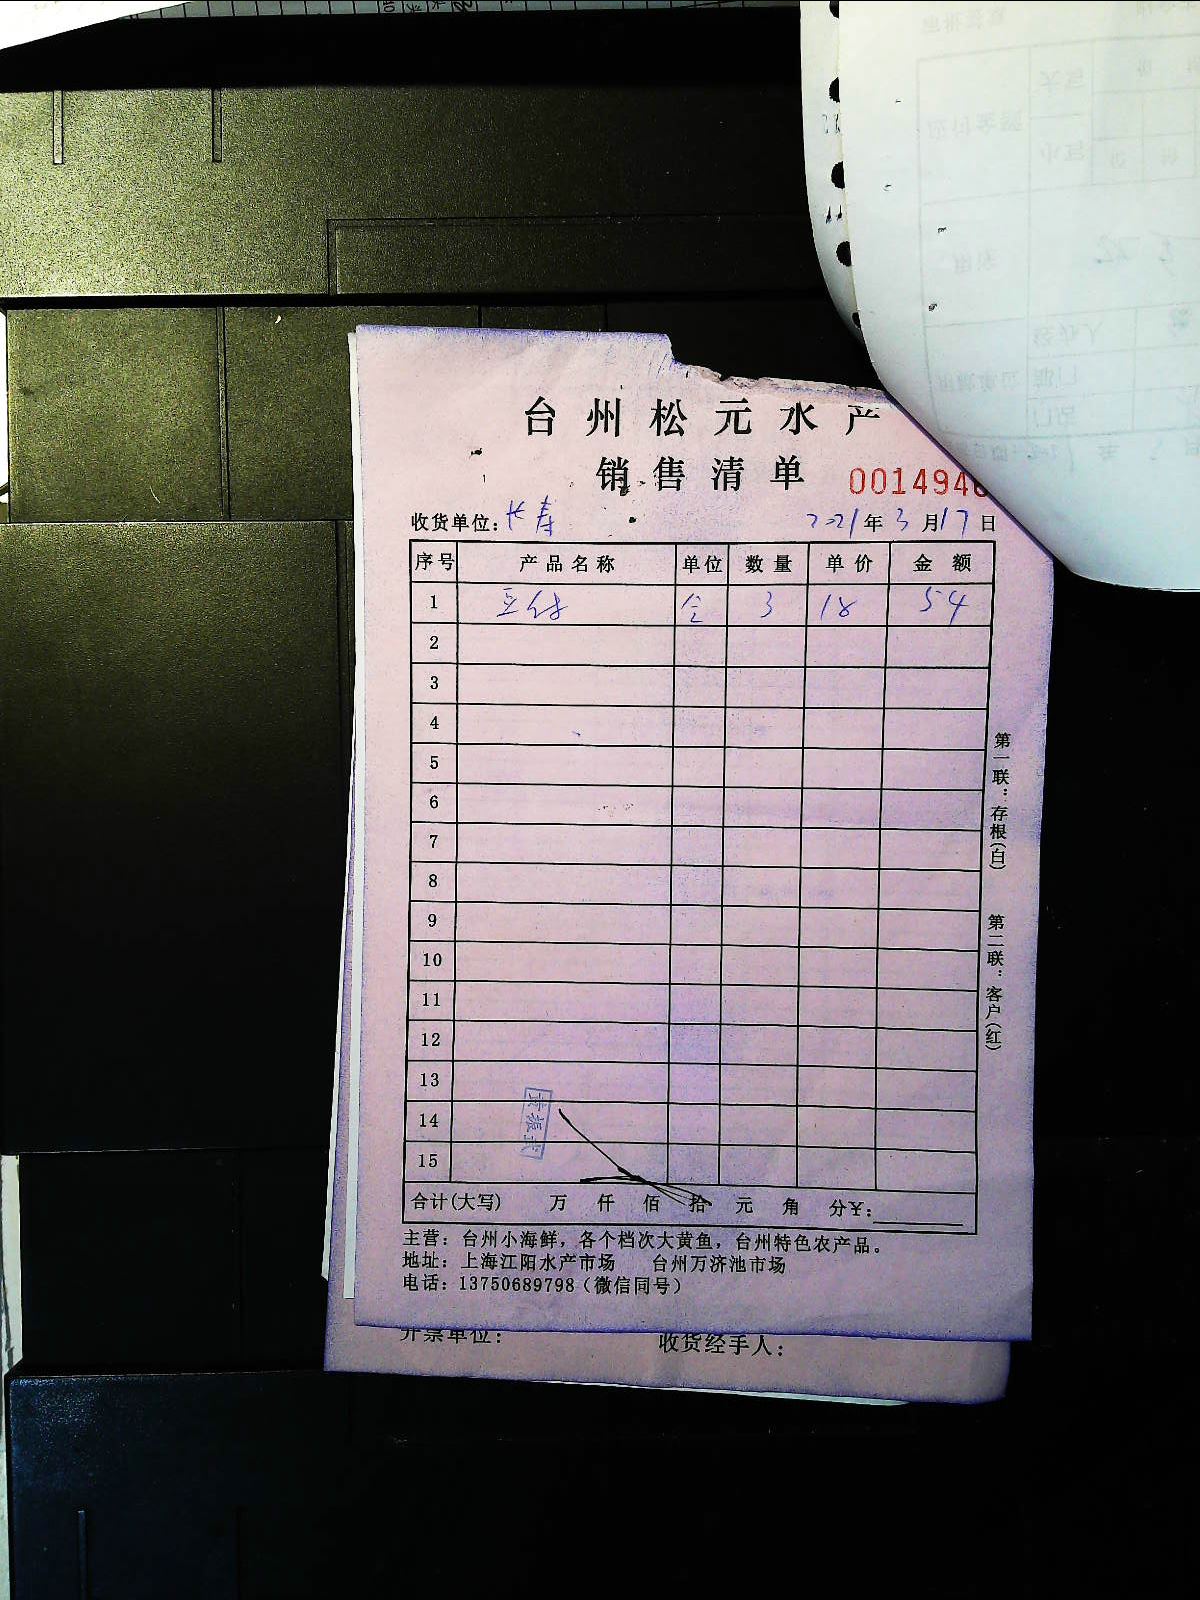 台州松元水产
销售清单 0014940
收货单位: 长寿 2021年3月17日
序号 产品名称 单位 数量 单价 金额
1 3 18 54
2
3
4
5
6
7
8
9
10
11
12
13
14
15
合计(大写) 万 仟 佰 拾 元 角 分¥:
主营: 台州小海鲜, 各个档次大黄鱼, 台州特色农产品。
地址: 上海江阳水产市场 台州万济池市场
电话: 13750689798 (微信同号)
第一联: 存根(白) 第二联: 客户(红)
开票单位: 收货经手人: